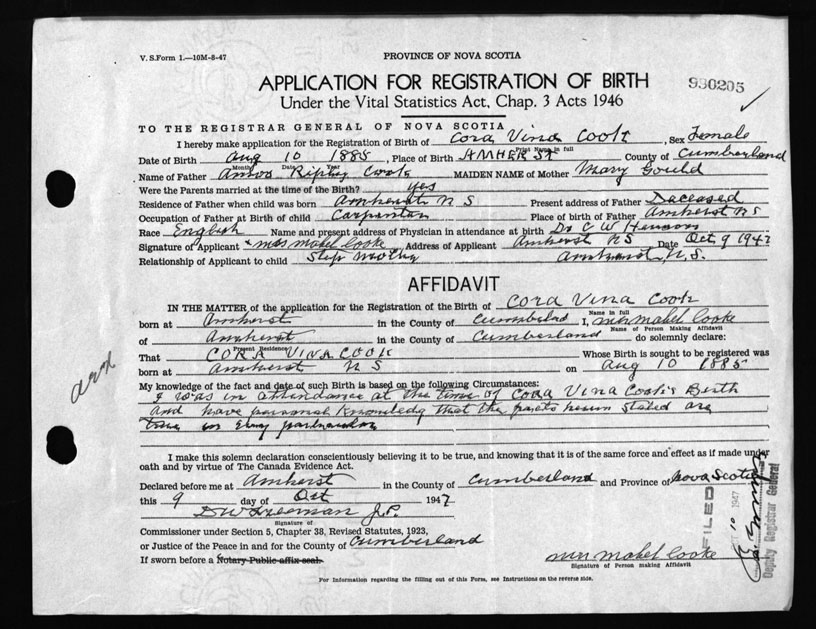 V. S. Form 1.—10M-8-47
PROVINCE OF NOVA SCOTIA
APPLICATION FOR REGISTRATION OF BIRTH
930205
Under the Vital Statistics Act, Chap. 3 Acts 1946
TO THE REGISTRAR GENERAL OF NOVA SCOTIA
I hereby make application for the Registration of Birth of Cora Vina Cook, Sex Female
Print Name in full
Date of Birth Aug 10 1885, Place of Birth AMHERST County of Cumberland
Month Date Year
Name of Father Amos Ripley Cook MAIDEN NAME of Mother Mary Gould
Were the Parents married at the time of the Birth? yes
Residence of Father when child was born Amherst N S Present address of Father Deceased
Occupation of Father at Birth of child Carpenter Place of birth of Father Amherst N S
Race English Name and present address of Physician in attendance at birth Dr C W
Signature of Applicant x Mrs Mabel Cooke Address of Applicant Amherst N S Date Oct 9 1947
Relationship of Applicant to child Step Mother Amherst, N. S.
AFFIDAVIT
IN THE MATTER of the application for the Registration of the Birth of Cora Vina Cook
Name in full
born at Amherst in the County of Cumberland I, Mrs Mabel Cooke
Name of Person Making Affidavit
of Amherst in the County of Cumberland do solemnly declare:
Present Residence
That CORA VINA COOK Whose Birth is sought to be registered was
born at Amherst N S on Aug 10 1885
My knowledge of the fact and date of such Birth is based on the following Circumstances:
I was in attendance at the time of Cora Vina Cook's Birth
and have personal knowledg that the facts herein stated are
true in every particular
I make this solemn declaration conscientiously believing it to be true, and knowing that it is of the same force and effect as if made under
oath and by virtue of The Canada Evidence Act.
Declared before me at Amherst in the County of Cumberland and Province of Nova Scotia
this 9 day of Oct 1947
J.P.
Signature of
Commissioner under Section 5, Chapter 38, Revised Statutes, 1923,
or Justice of the Peace in and for the County of Cumberland
If sworn before a Notary Public affix seal.
Mrs Mabel Cooke
Signature of Person making Affidavit
For Information regarding the filling out of this Form, see Instructions on the reverse side.
FILED
OCT 10 1947
Deputy Registrar General